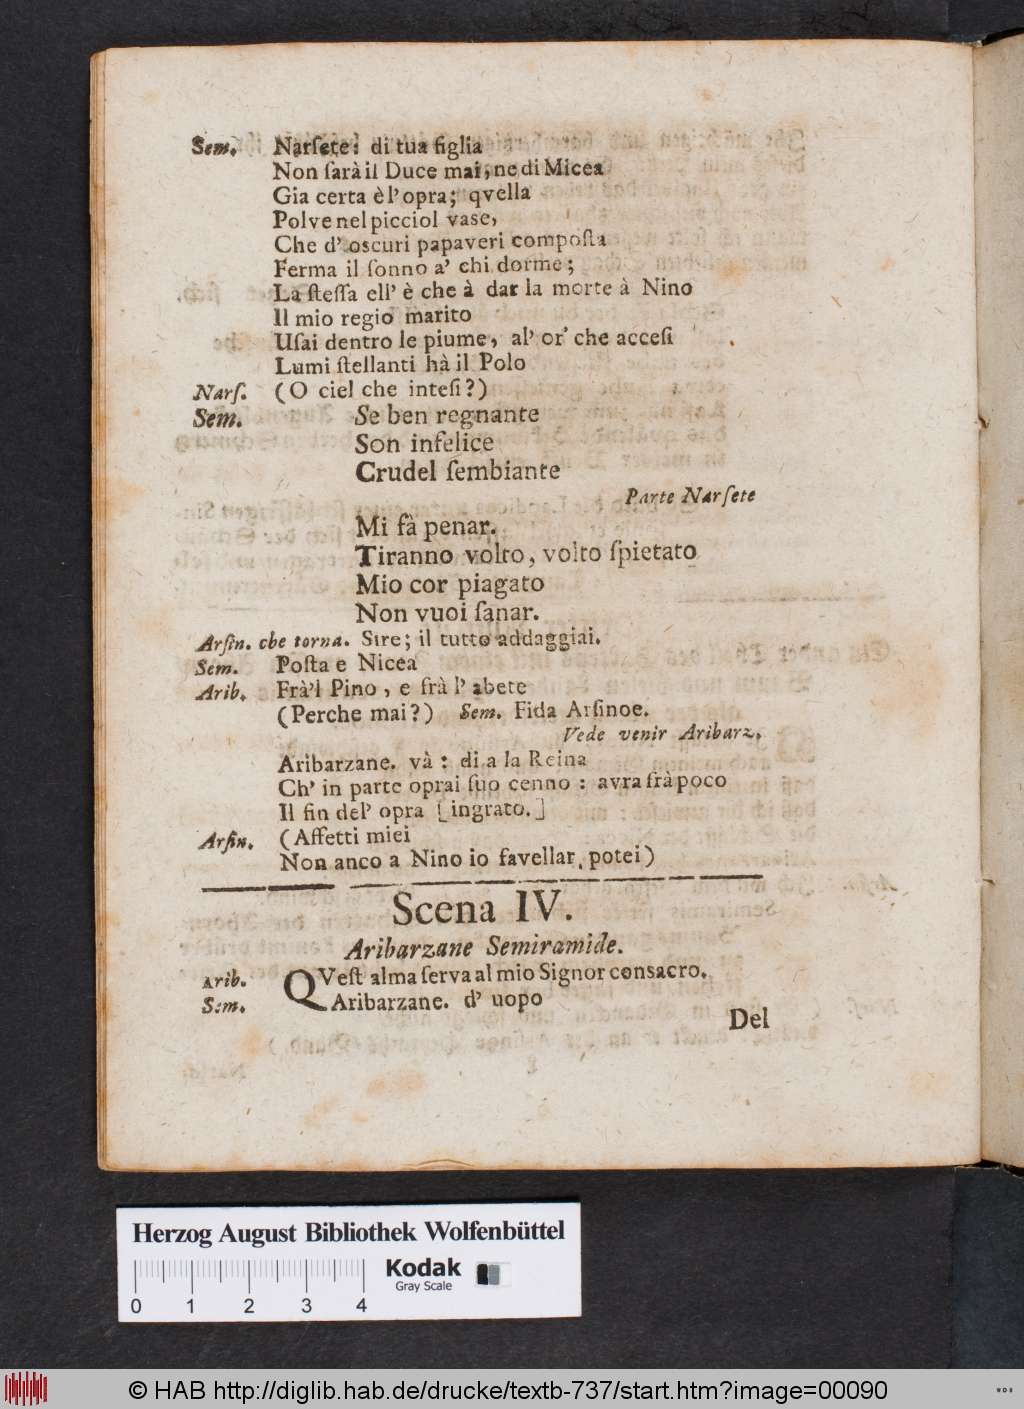 Sem. Narſete: di tua figlia
Non ſarà il Duce mai, ne di Micea
Gia certa è l'opra; qvella
Polve nel picciol vase,
Che d' oscuri papaveri compoſta
Ferma il ſonno a' chi dorme;
La ſteſſa ell' è che à dar la morte à Nino
Il mio regio marito
Uſai dentro le piume, al' or' che acceſi
Lumi ſtellanti hà il Polo
Narſ. (O ciel che inteſi?)
Sem. Se ben regnante
Son infelice
Crudel ſembiante
Parte Narſete
Mi fà penar.
Tiranno volto, volto ſpietato
Mio cor piagato
Non vuoi ſanar.
Arſin. che torna. Sire; il tutto addaggiai.
Sem. Poſta e Nicea
Arib. Frà'l Pino, e frà l' abete
(Perche mai?) Sem. Fida Arſinoe.
Vede venir Aribarz.
Aribarzane. và: di a la Reina
Ch' in parte oprai ſuo cenno: avra frà poco
Il fin del' opra [ingrato.]
Arſin. (Affetti miei
Non anco a Nino io favellar potei)
Scena IV.
Aribarzane Semiramide.
Arib. QVeſt alma ſerva al mio Signor consacro.
Sem. Aribarzane. d' uopo
Del
Herzog August Bibliothek Wolfenbüttel
Kodak
Gray Scale
0 1 2 3 4
© HAB http://diglib.hab.de/drucke/textb-737/start.htm?image=00090